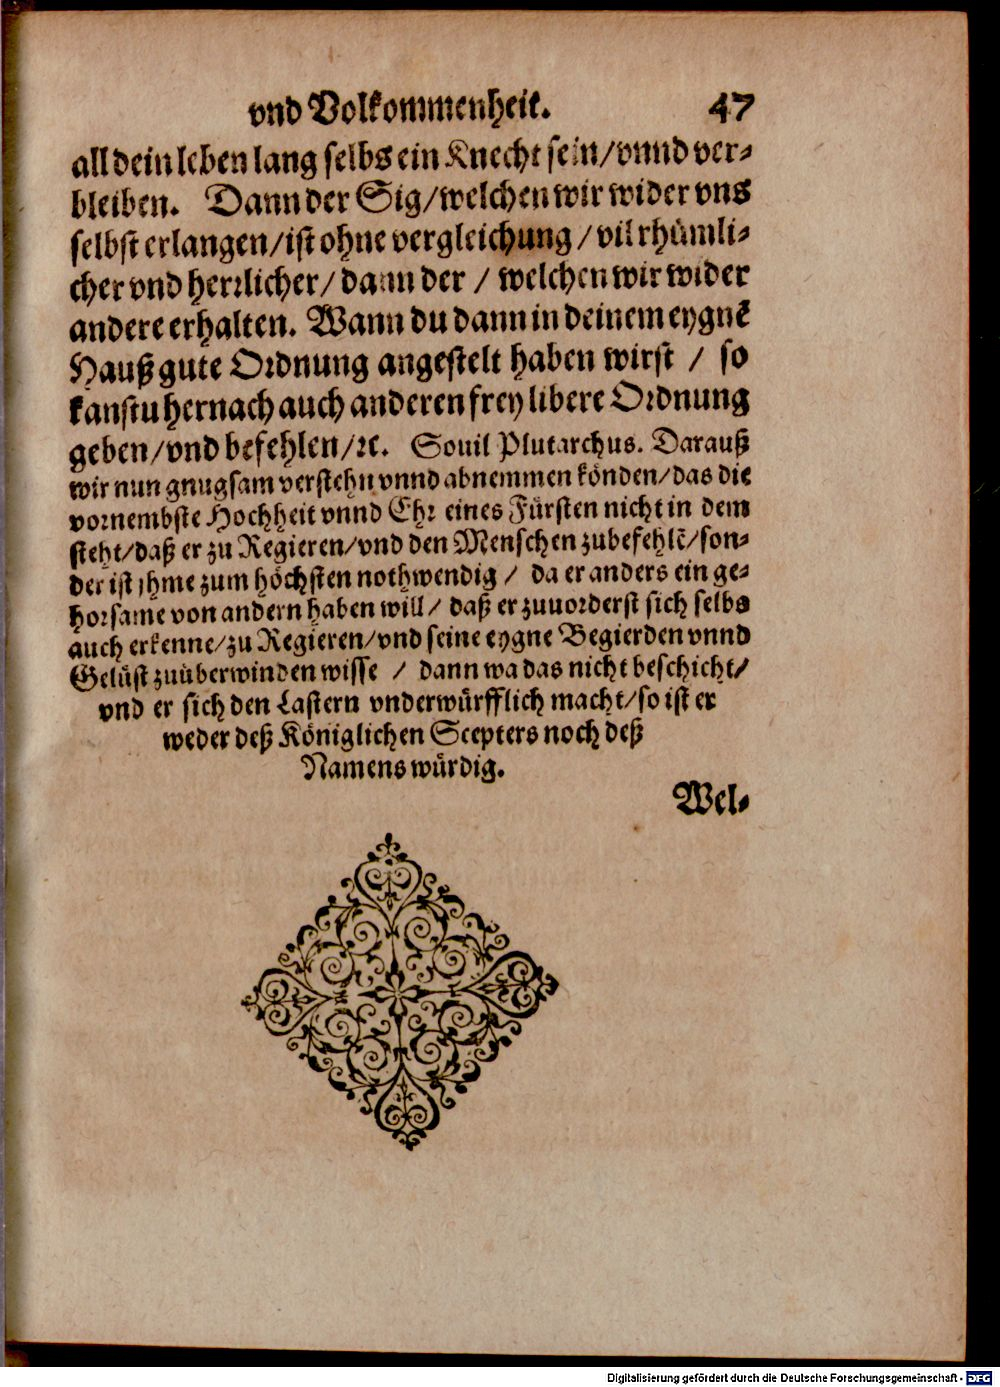 vnd Volkommenheit. 47
all dein leben lang selbs ein Knecht sein/vnnd ver-
bleiben. Dann der Sig/welchen wir wider vns
selbst erlangen/ist ohne vergleichung/vil rhümli-
cher vnd herrlicher/dann der/welchen wir wider
andere erhalten. Wann du dann in deinem eygnē
Hauß gute Ordnung angestelt haben wirst/so
kanstu hernach auch anderen frey libere Ordnung
geben/vnd befehlen/ꝛc. Souil Plutarchus. Darauß
wir nun gnugsam verstehn vnnd abnemmen könden/das die
vornembste Hochheit vnnd Ehr eines Fürsten nicht in dem
steht/daß er zu Regieren/vnd den Menschen zubefehlē/son-
der ist jhme zum höchsten nothwendig/da er anders ein ge-
horsame von andern haben will/daß er zuuorderst sich selbs
auch erkenne/zu Regieren/vnd seine eygne Begierden vnnd
Gelüst zuüberwinden wisse/dann wa das nicht beschicht/
vnd er sich den Lastern vnderwürfflich macht/so ist er
weder deß Königlichen Scepters noch deß
Namens würdig.
Wel-
Digitalisierung gefördert durch die Deutsche Forschungsgemeinschaft - DFG